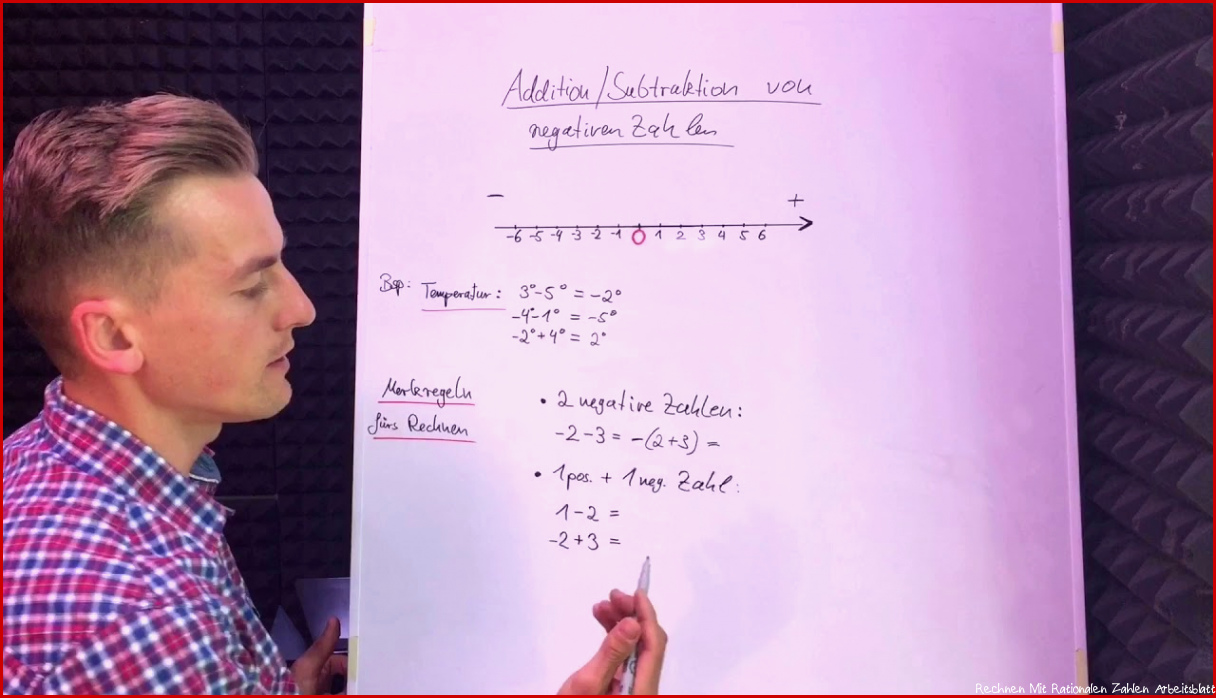 Addition/Subtraktion von
negativen Zahlen
− +
-6 -5 -4 -3 -2 -1 0 1 2 3 4 5 6
Bsp: Temperatur: 3°-5° = -2°
-4°-1° = -5°
-2°+4° = 2°
Merkregeln
fürs Rechnen
• 2 negative Zahlen:
-2-3 = -(2+3) =
• 1 pos. + 1 neg. Zahl:
1-2 =
-2+3 =
Rechnen Mit Rationalen Zahlen Arbeitsblatt